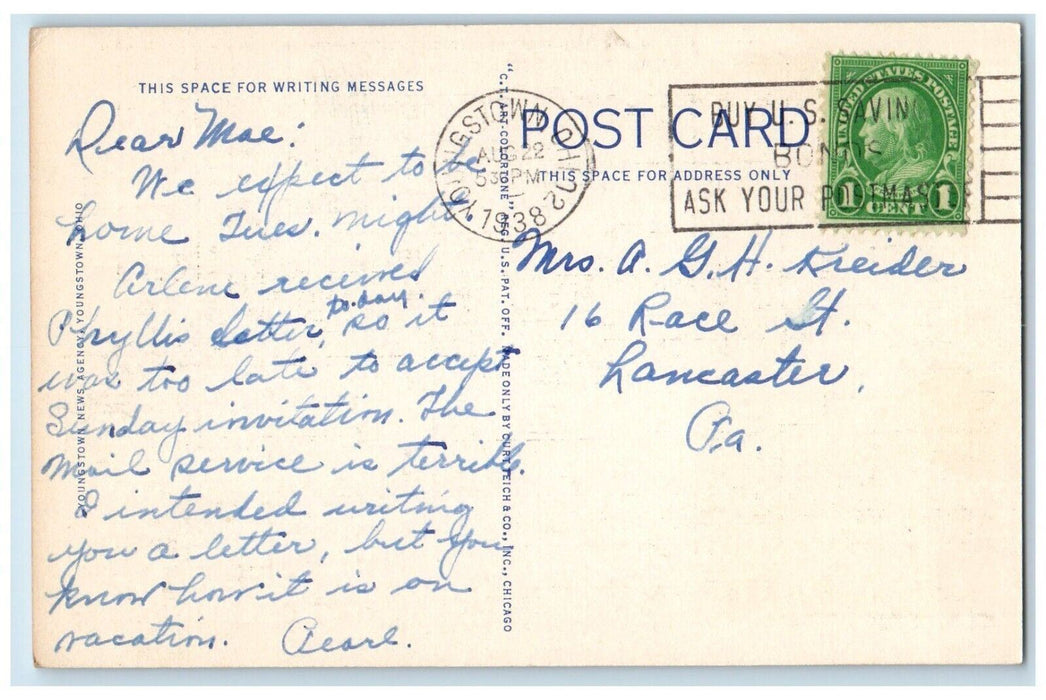 THIS SPACE FOR WRITING MESSAGES
Dear Mae:
We expect to be
home Tues. night.
Arlene received
Phyllis letter, to-day. so it
was too late to accept
Sunday invitation. The
mail service is terrible.
I intended writing
you a letter, but you
know how it is on
vacation. Pearl.
YOUNGSTOWN NEWS AGENCY, YOUNGSTOWN, OHIO
"C.T. ART-COLORTONE" REG. U.S. PAT. OFF. MADE ONLY BY CURT TEICH & CO., INC., CHICAGO
YOUNGSTOWN, OHIO 2
AUG 22
530 PM
1938
POST CARD
THIS SPACE FOR ADDRESS ONLY
BUY U. S. SAVINGS
BONDS
ASK YOUR POSTMASTER
UNITED STATES POSTAGE
1 CENT 1
Mrs. A. G. H. Kreider
16 Race St.
Lancaster,
Pa.